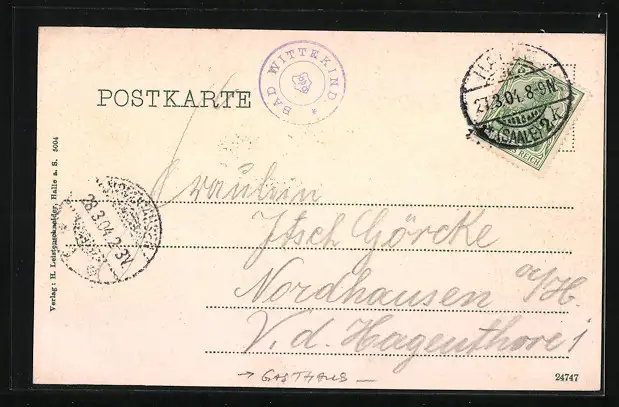 POSTKARTE
BAD WITTEKIND *
HALLE
27.3.04.8-9N
(SAALE) 2 k
REICH
28.3.04.2-3V
Verlag: H. Leistenschneider, Halle a. S. 5004
Fräulein
Görcke
Nordhausen a/H.
V. d. Hagenthore 1
→ GASTHAUS —
24747